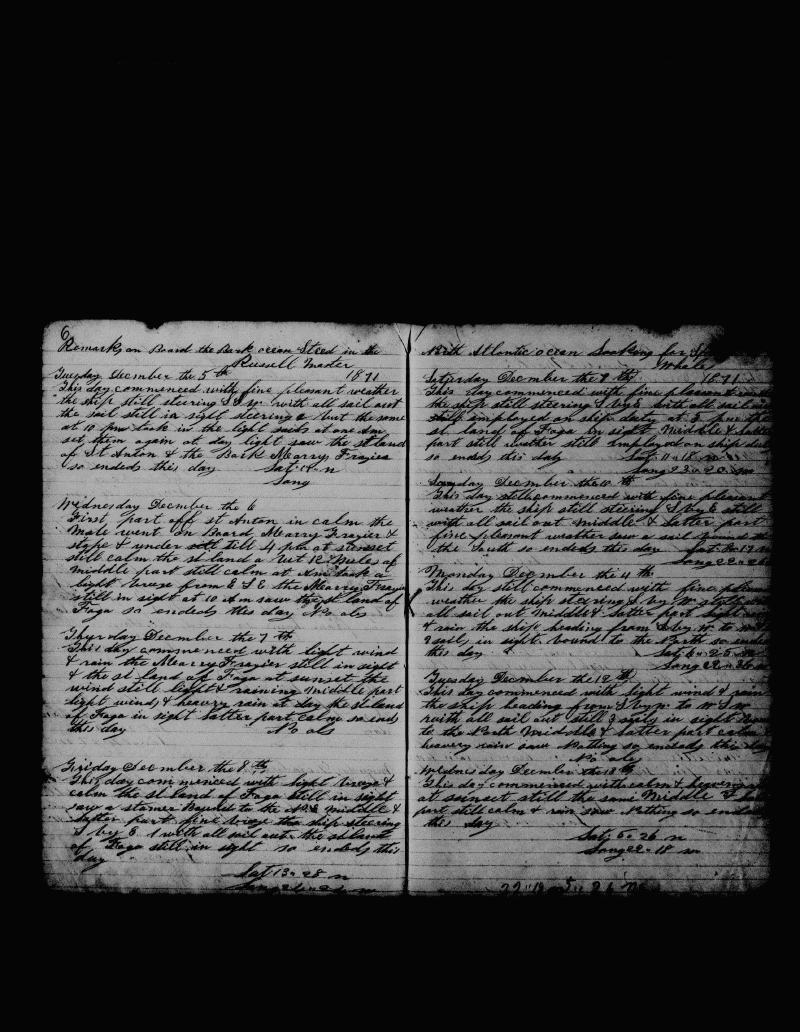 6
Remarks on Board the Bark ocean Steed in the
Russell Master
Tuesday December the 5th 1871
This day commenced with fine pleasant weather
the ship still steering with all sail out
the sail still in sight steering but the same
at 10 pm took in the light sails at one Am
set them again at day light saw the st land
of St Anton & the Bark Mearry Frazier
so ended this day Sat n
Song
Wednesday December the 6
First part off st Anton in calm the
Mate went On Board Mearry Frazier &
stope & under till 4 pm at sunset
still calm the st land a but 12 Miles of
middle part still calm at Am took a
light breze from E S E the Mearry Frazier
still in sight at 10 Am saw the st land of
Foga so endeds this day No obs
Thursday December the 7th
This day commenced with light wind
& rain the Mearry Frazier still in sight
& the st land of Foga at sunset the
wind still light & raining middle part
light winds & heavery rain at day the st land
of Foga in sight latter part calm so end
this day No obs
Friday December the 8th
This day commenced with light breze &
calm the st land of Foga still in sight
saw a stomer Bound to the middle &
latter part fine breze the ship steering
S by E with all sail out the st land
of Foga still in sight so endeds this
day
Sat 13 - 28 n
Song
North Atlantic ocean Looking for
Whale
Satyrday December the 9th 1871
This day commenced with fine pleasant
the ship still steering S by E with all sail
imployed on ship at 6 pm the
st land of Foga in sight Middle & latter
part still wather still imployed on ship
so ended this day Sat 11 - 18 n
Song 23 - 20
Sunday December the 10th
This day still commenced with fine pleasent
weather the ship still steering S by E still
with all sail out middle & latter part
fine pleasant weather saw a sail Bound
the South so endeds this day Sat
Song 22 - 26
Monday December the 4th
This day still commenced with fine
weather the ship steering S by
all sail out middle & latter part
& rain the ship heading from S by W to
sail in sight bound to the North so ended
this day Sat 6 - 25
Song 22 - 36
Tuesday December the 12th
This day commenced with light wind & rain
the ship heading from S by to W S W
with all sail out still 3 sails in sight
to the North middle & latter part calm
heavery rain saw Nothing so endeds this day
No obs
Wednesday December the 13th
This day commenced with calm &
at sunset still the same Middle
part still calm & rain saw Nothing so ended
this day
Sat 6 - 26 n
Song 22 - 18 w